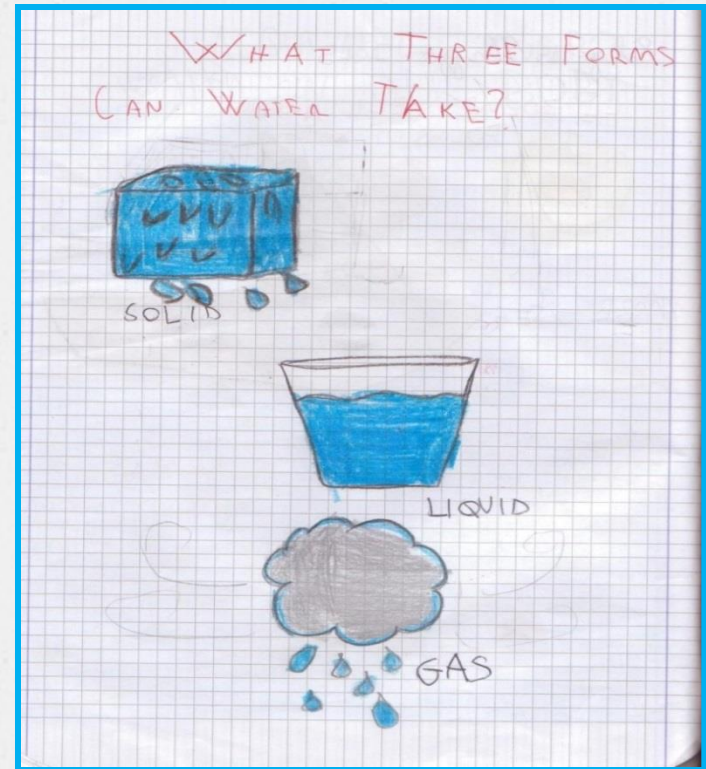 WHAT THREE FORMS
CAN WATER TAKE?
SOLID
LIQUID
GAS